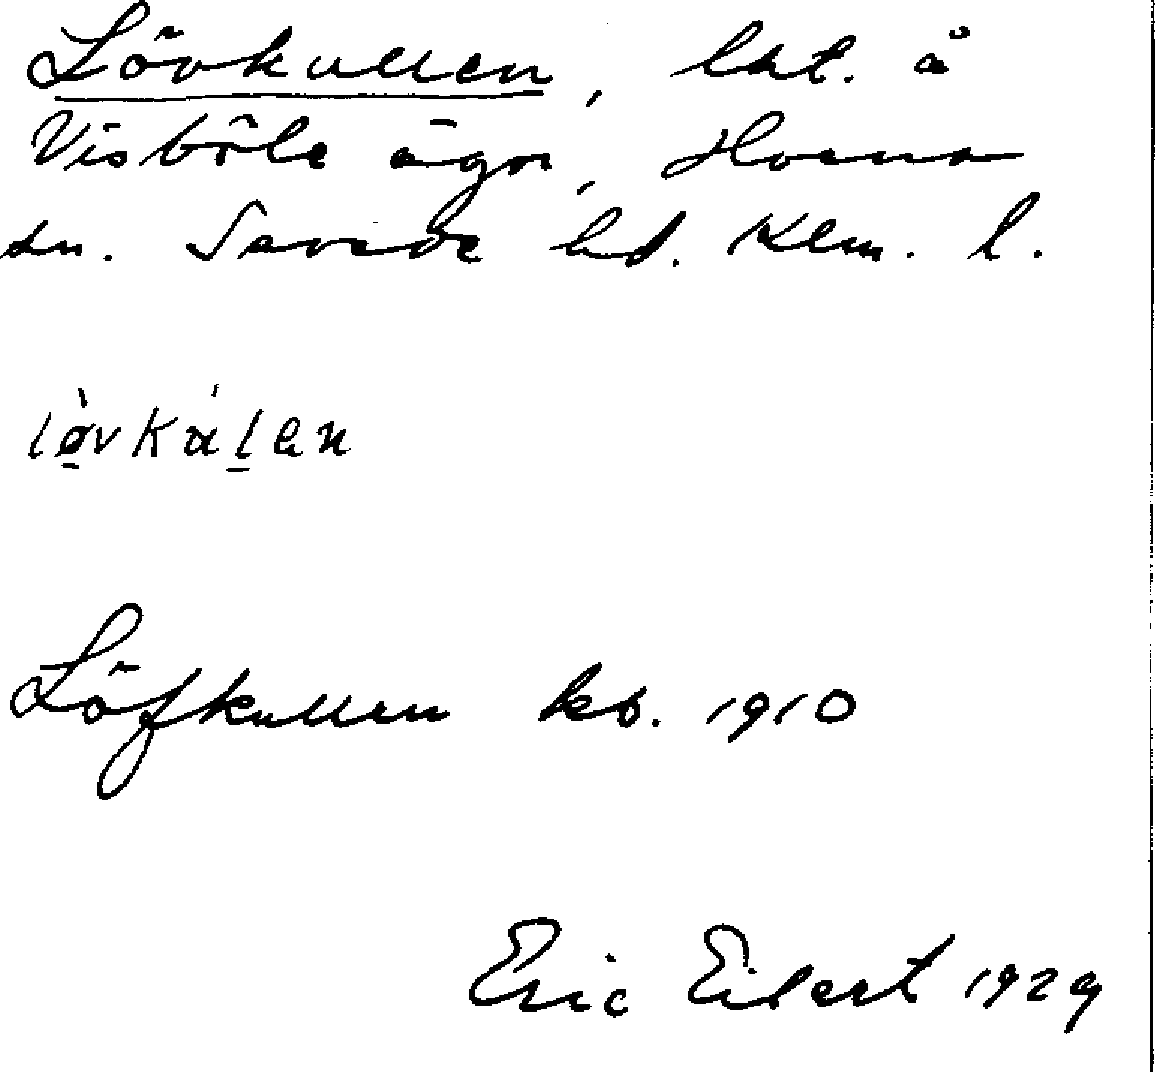 Lövkullen, lht. å
Visböle ägor, Horna
sn. Sevede hd. Klm. l.
lø̀vkálen
Löfkullen kb. 1910
Eric Eilert 1929